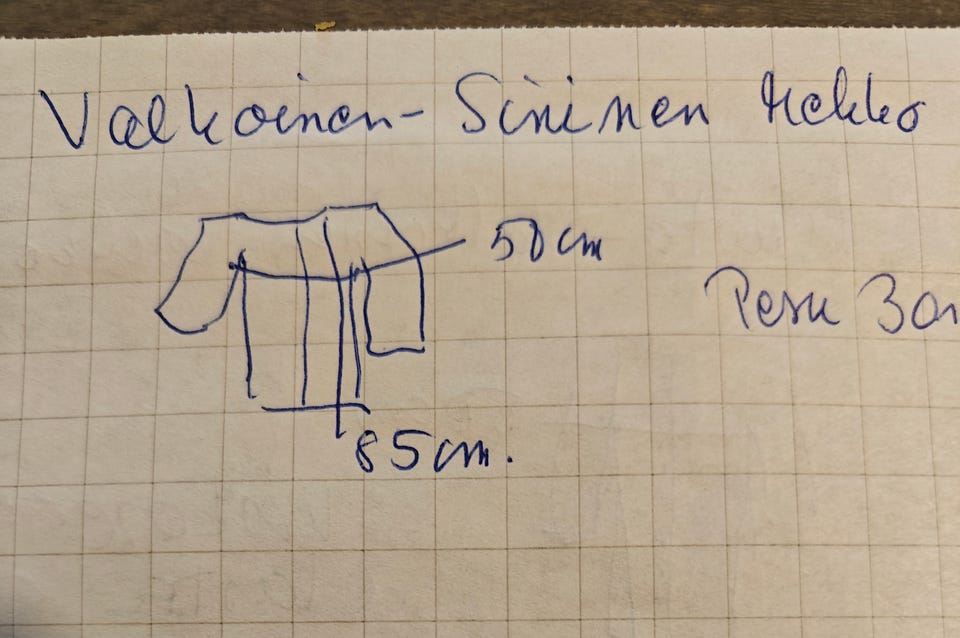 Valkoinen-Sininen Mekko
50cm
Pesu 30
85cm.